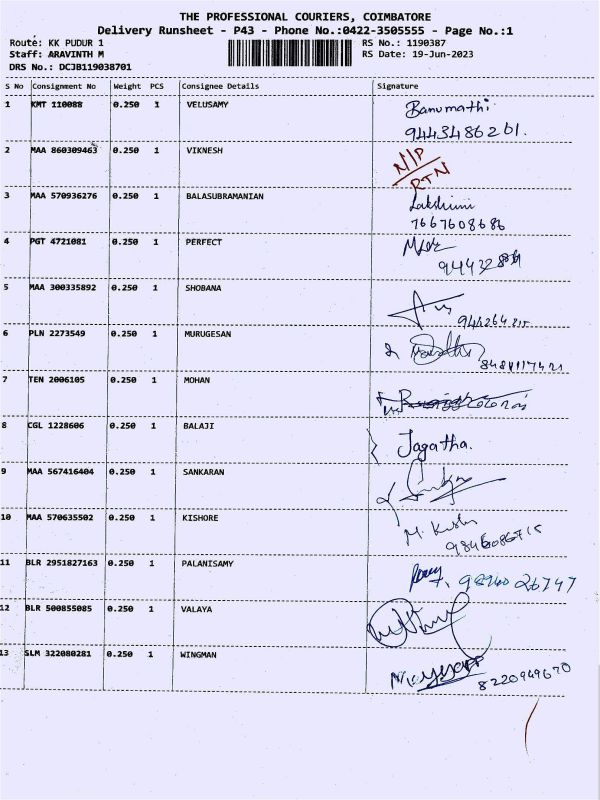 THE PROFESSIONAL COURIERS, COIMBATORE
Delivery Runsheet - P43 - Phone No.:0422-3505555 - Page No.:1
Route: KK PUDUR 1 RS No.: 1190387
Staff: ARAVINTH M RS Date: 19-Jun-2023
DRS No.: DCJB119038701
S No Consignment No Weight PCS Consignee Details Signature
1 KMT 110088 0.250 1 VELUSAMY Banumathi
9443486261.
2 MAA 860309463 0.250 1 VIKNESH N/P
RTN
3 MAA 570936276 0.250 1 BALASUBRAMANIAN Lakshmi
7667608686
4 PGT 4721081 0.250 1 PERFECT
5 MAA 300335892 0.250 1 SHOBANA
6 PLN 2273549 0.250 1 MURUGESAN
7 TEN 2006105 0.250 1 MOHAN
8 CGL 1228606 0.250 1 BALAJI Jagatha.
9 MAA 567416404 0.250 1 SANKARAN
10 MAA 570635502 0.250 1 KISHORE M.
11 BLR 2951827163 0.250 1 PALANISAMY
12 BLR 500855085 0.250 1 VALAYA
13 SLM 322080281 0.250 1 WINGMAN
8220949670